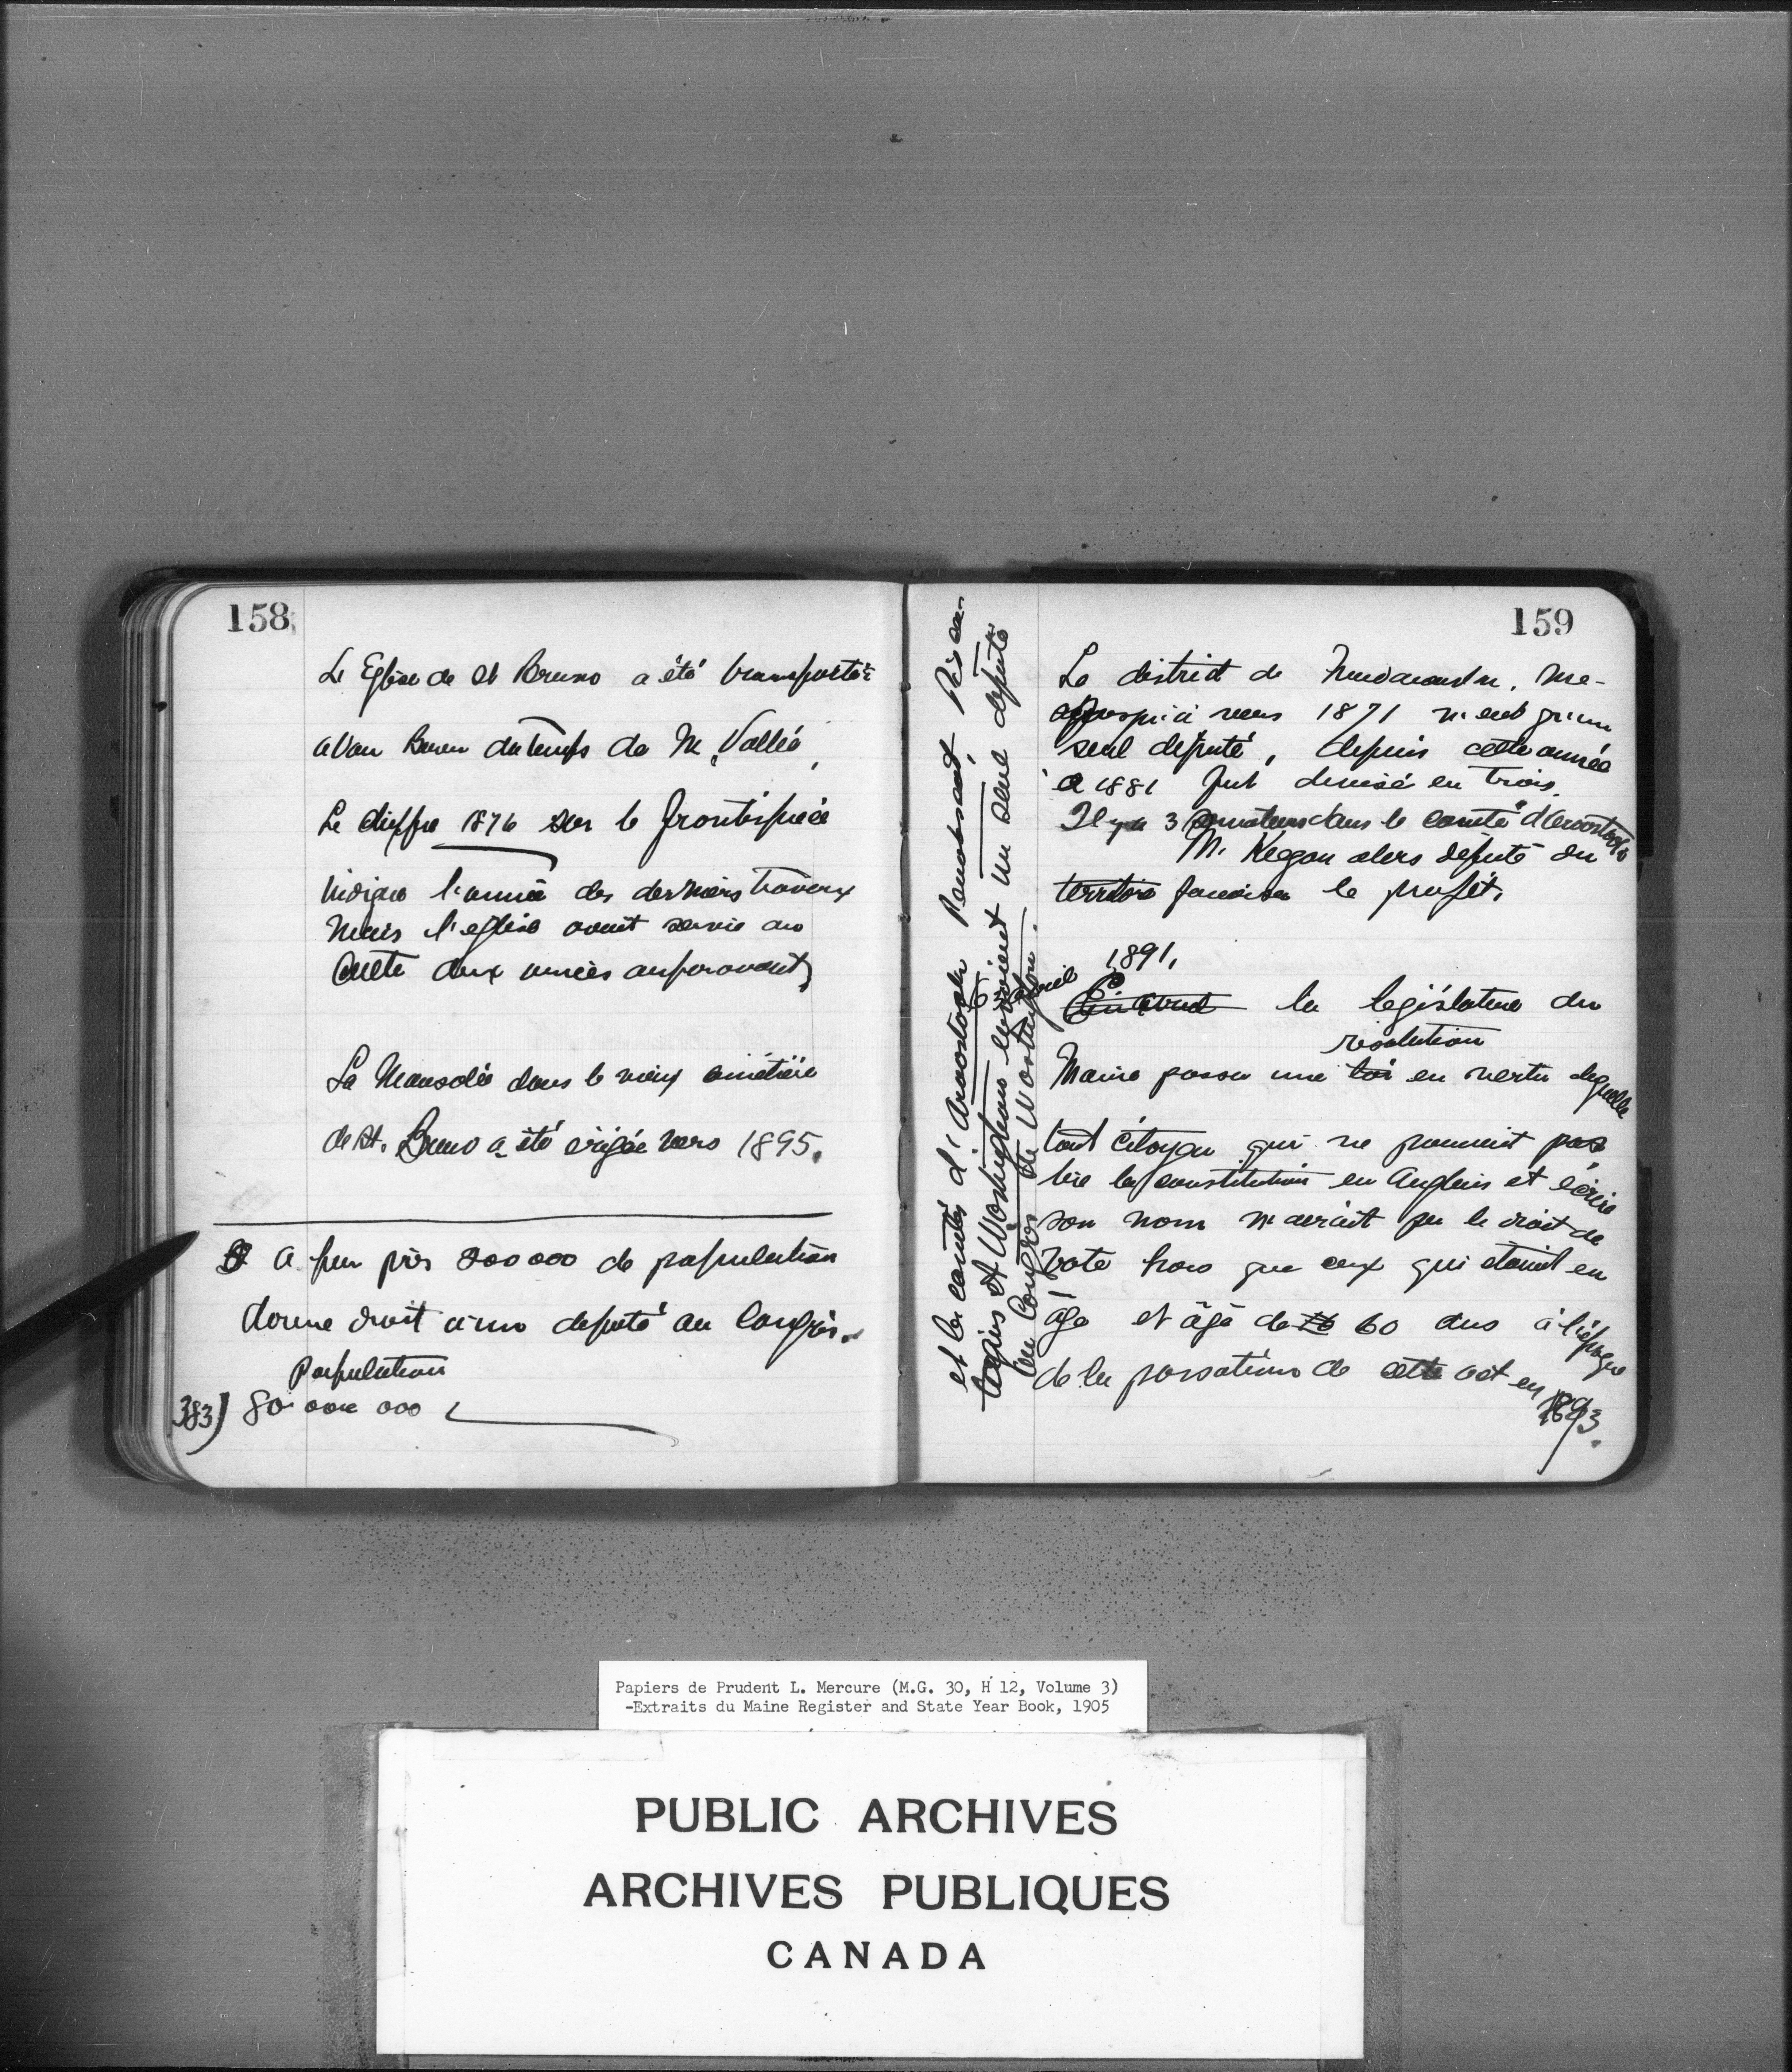 158
L'Eglise de St Bruno a été transportée
a Van Buren du temps de M. Vallée,
Le chiffre 1876 sur le frontispiece
indique l'année des derniers travaux
mais l'eglise avait servie au
Culte deux années auparavant,
Le Mausolée dans le vieux cimetière
de St. Bruno a été erigée vers 1895.
A peu près 200000 de population
donne droit à un deputé au Congrès.
Population
383) 80 000 000
159
Le district de Madawaska. Me-
jusqu'à vers 1871 n'eut qu'un
seul député, depuis cette année
à 1881 fut divisé en trois.
Il y a 3 senateurs dans le comté d'Aroostook
M. Keegan alors député du
territoire favorisa le projet,
1891,
la legislature du
résolution
Maine passa une loi en vertu de quelle
tout citoyen qui ne pouvait pas
lire la constitution en Anglais et écrire
son nom n'aurait pu le droit de
vote hors que ceux qui etaient en
âge et âgé de 60 ans à l'époque
de la passation de cette act en
1893.
et les comtés d'Aroostook Penobscot, Pisca-
taquis et Washington envoient un seul deputé
au Congres de Washington.
Papiers de Prudent L. Mercure (M.G. 30, H 12, Volume 3)
-Extraits du Maine Register and State Year Book, 1905
PUBLIC ARCHIVES
ARCHIVES PUBLIQUES
CANADA